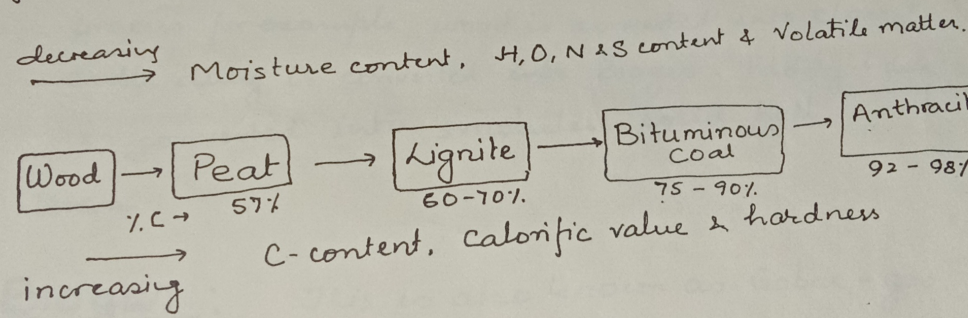 decreasing
→ Moisture content, H, O, N & S content & Volatile matter.
Wood → Peat → Lignite → Bituminous coal → Anthracit
% C → 57% 60-70%. 75 - 90% 92 - 98%
→ C-content, Calorific value & hardness
increasing